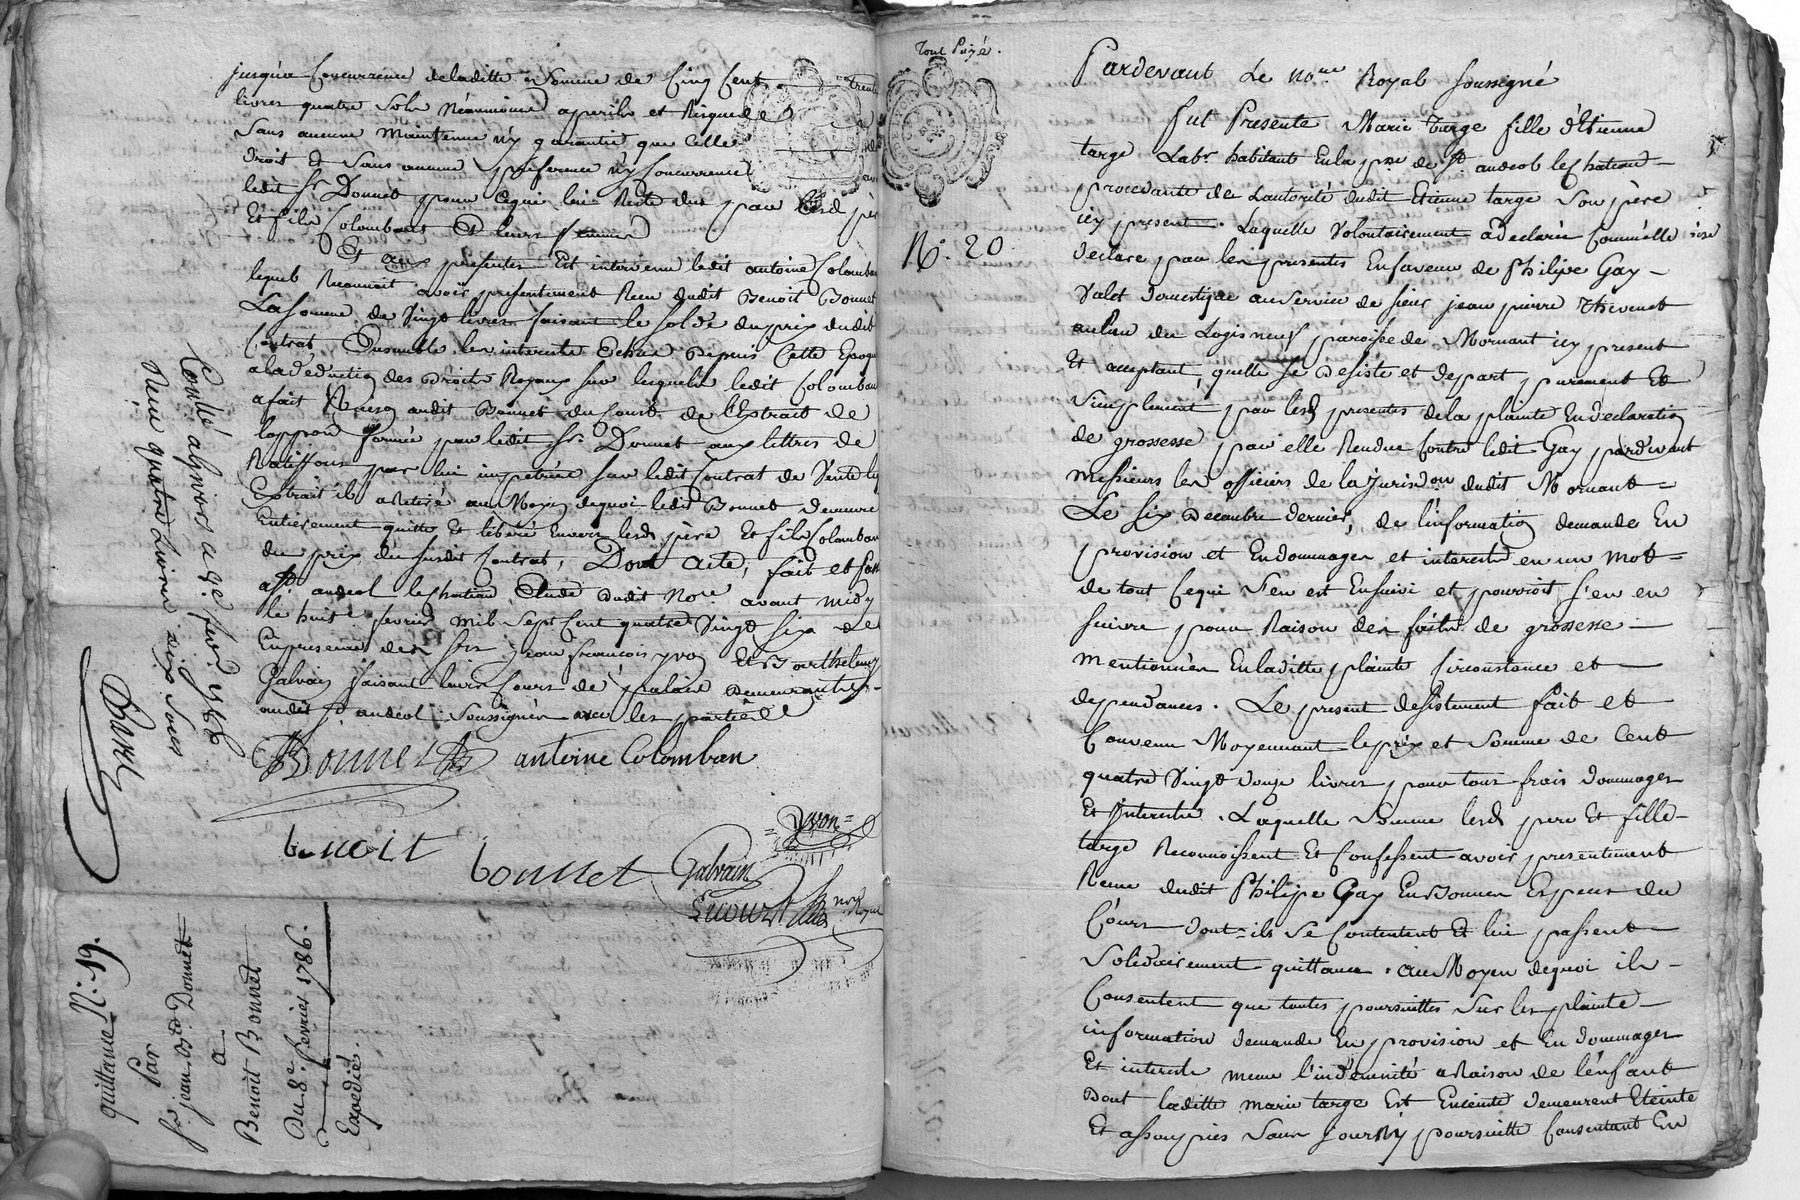 jusqu'a Concurrence deladitte Somme de Cinq Cent trente
livres quatre Sols Néanmoins aperils et Risques
Sans aucune Maintenue n'y garantie que Celle de
droit Et Sans aucune préference n'y Concurrence avec
ledit Sr. Donnet pour Cequi lui Reste dus par lesd père
Et fils Colomban Et leurs femmes
Et aux presentes Est intervenu ledit antoine Colomban
lequel Reconnoit avoir presentement Reçu dudit Benoit Bonnet
La Somme de Vingt livres faisant le Solde duprix dudit
Contrat Ensemble les interests Echus Depuis Cette Epoque
aladeduction des Droits Royaux Sur lesquels ledit Colomban
afait Raison audit Bonnet du Coust de l'Extrait de
loppon formée par ledit Sr. Donnet aux lettres de
Ratiffon par lui impetrées Sur ledit Contrat de Vente
Extrait il aRetiré au Moyen dequoi ledit Bonnet demeure
Entierement quitte Et libéré Envers lesd père Et fils Colomban
du prix du Susdit Contrat, Dont Acte, fait et passé
a St. andeol le chateau Etude dudit No.re avant midy
le huit fevrier Mil Sept Cent quatre Vingt Six
En presence des Srs jean francois yvon Et Barthelemy
Galvain faisant leurs Cours de palais Demeurants
audit St. andeol Soussignés avec les parties
Bonnet antoine Colomban
benoit bonnet
Yvon
Galvain
nore Royal
Conlé. a givors a 8e. fevr. 1786
Reçu quatre Livres dix Sous
quittance N.: 19.
Par
Sr. jean Bte. Donnet
a
Benoit Bonnet
Du 8e. fevrier 1786.
Expedié.
Tout Payé.
N.: 20
Pardevant Le No.re Royal Soussigné
fut Presente Marie Targe fille d'Etienne
targe Labr. habitant En la p.sse de St. andeol le Chateau
procedante de Lautorité dudit Etienne targe Son père
icy present. Laquelle Volontairement a declaré Comm'elle
declare par les presentes En faveur de Philipe Gay
Valet domestique au Service de Sieur jean pierre Thevenet
au lieu du Logis neuf paroisse de Mornant icy present
Et acceptant, quelle Se Desiste et depart purement Et
Simplement par lesd presentes dela plainte En declaration
de grossesse par elle Rendue Contre ledit Gay pardevant
Messieurs les officiers de la jurison dudit Mornant
Le Six Decembre dernier, de l'information demande En
provision et En dommages et interests en un mot
de tout Cequi S'en est Ensuivi et pourroit S'en en
Suivre pour Raison des faits de grossesse
mentionnés En laditte plainte Circonstance et
dependances. Le present desistement fait et
Convenu Moyennant le prix et Somme de Cent
quatre Vingt douze livres pour tous frais dommages
Et Interests. Laquelle Somme lesd pere Et fille
targe Reconnoissent Et Confessent avoir presentement
Reçue dudit Philipe Gay En Bonnes Especes du
Cours dont ils Se Contentent Et lui passent
Solidairement quittance. au Moyen dequoi ils
Consentent que toutes poursuittes Sur les plainte
information demande En provision et En dommages
Et interests meme l'indemnité aRaison de l'enfant
Dont laditte marie targe Est Enceinte demeurent Eteinte
Et assoupies Sans poursuitte Consentant En